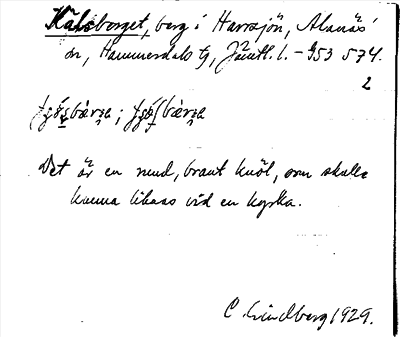 Kälsberget, berg i Harrsjön, Alanäs
sn, Hammerdals tg, Jämtl. l. – 953 574.
2
Det är en rund, brant knöl, som skulle
kunna liknas vid en kyrka.
C. Lindberg 1929.